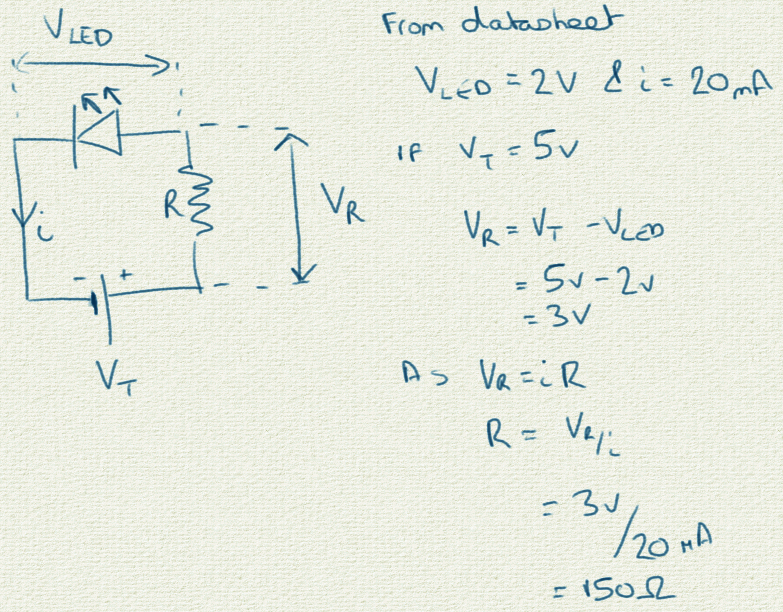 V_LED
i
R
V_R
- +
V_T
From datasheet
V_LED = 2V & i = 20mA
IF V_T = 5v
V_R = V_T - V_LED
= 5v - 2v
= 3V
As V_R = i R
R = V_R/i
= 3v/20mA
= 150Ω